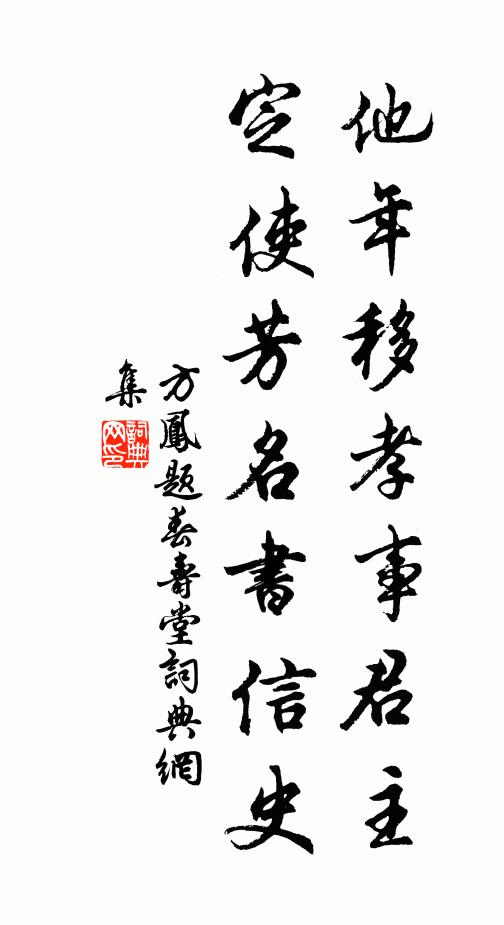 他年移孝事君主
定使芳名書信史
方鳳題春壽堂詞典網
集
詞典网印